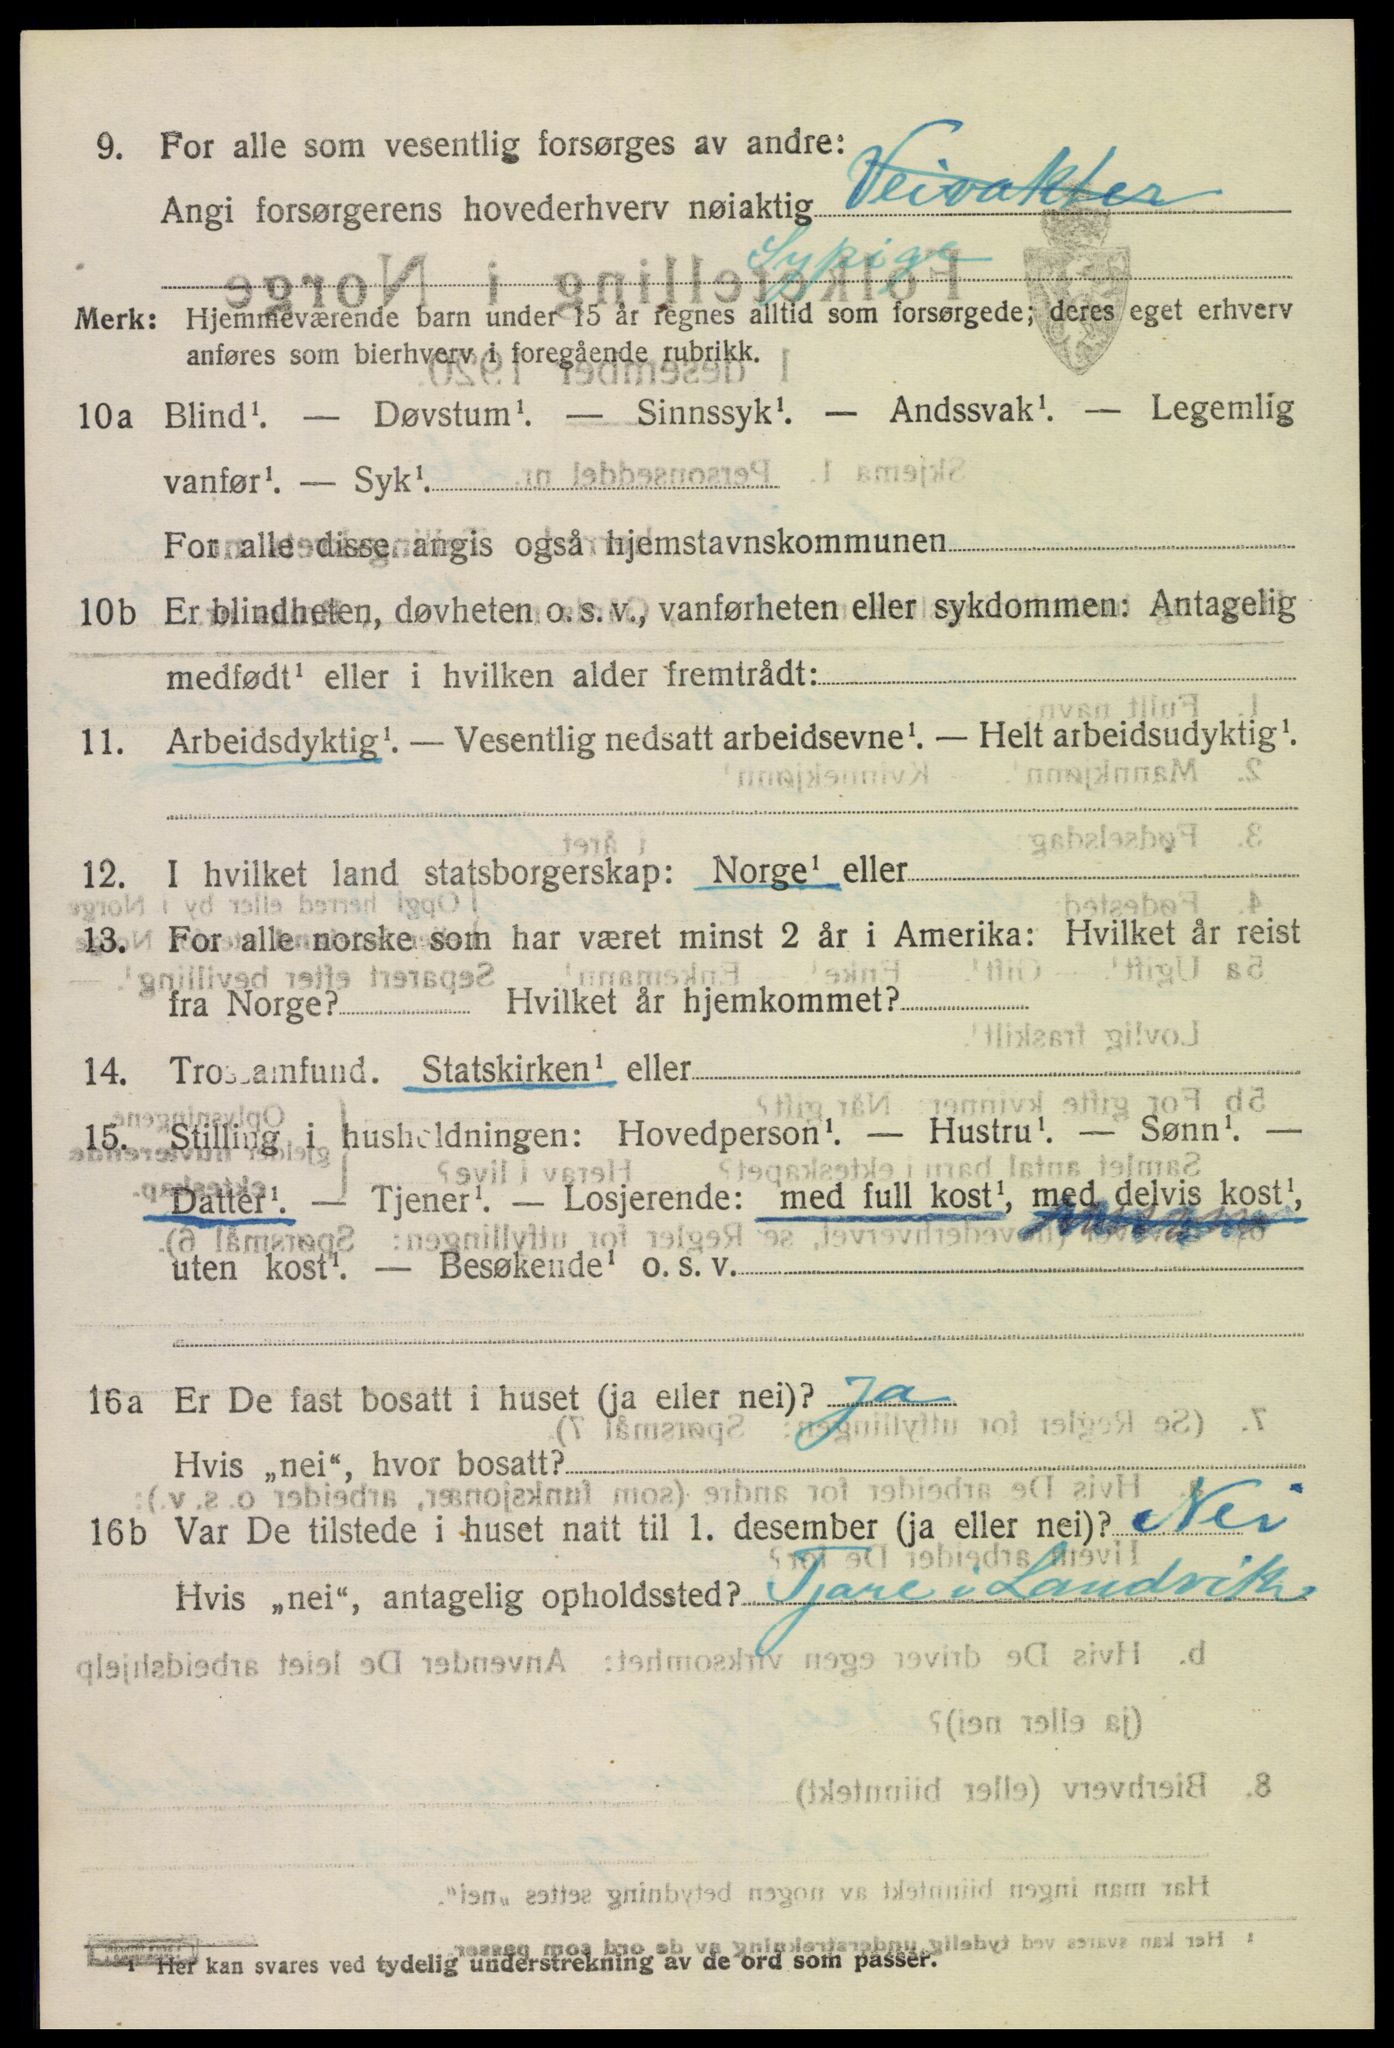 9. For alle som vesentlig forsørges av andre:
Angi forsørgerens hovederhverv nøiaktig Veivakter
Sypige
Merk: Hjemmeværende barn under 15 år regnes alltid som forsørgede; deres eget erhverv
anføres som bierhverv i foregående rubrikk.
10a Blind¹. — Døvstum¹. — Sinnssyk¹. — Andssvak¹. — Legemlig
vanfør¹. — Syk¹.
For alle disse angis også hjemstavnskommunen
10b Er blindheten, døvheten o. s. v., vanførheten eller sykdommen: Antagelig
medfødt¹ eller i hvilken alder fremtrådt:
11. Arbeidsdyktig¹. — Vesentlig nedsatt arbeidsevne¹. — Helt arbeidsudyktig¹.
12. I hvilket land statsborgerskap: Norge¹ eller
13. For alle norske som har været minst 2 år i Amerika: Hvilket år reist
fra Norge? Hvilket år hjemkommet?
14. Trossamfund. Statskirken¹ eller
15. Stilling i husholdningen: Hovedperson¹. — Hustru¹. — Sønn¹. —
Datter¹. — Tjener¹. — Losjerende: med full kost¹, med delvis kost¹,
uten kost¹. — Besøkende¹ o. s. v.
16a Er De fast bosatt i huset (ja eller nei)? Ja
Hvis „nei“, hvor bosatt?
16b Var De tilstede i huset natt til 1. desember (ja eller nei)? Nei
Hvis „nei“, antagelig opholdssted? Tjore i Landvik
¹ Her kan svares ved tydelig understrekning av de ord som passer.